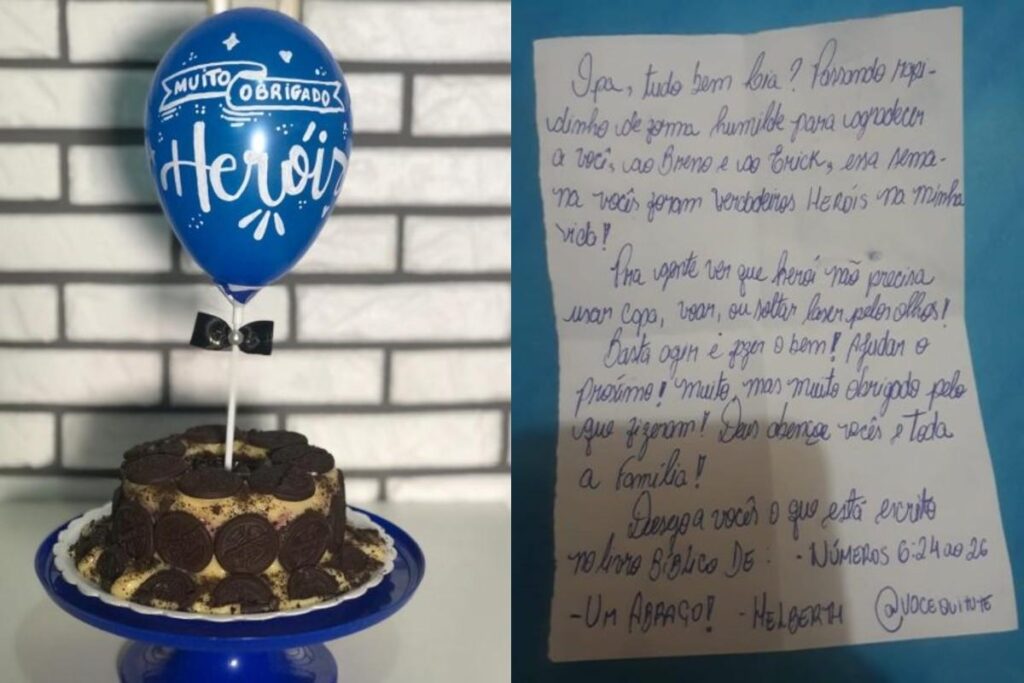 MUITO
OBRIGADO
Herói
Opa, tudo bem Caia? Passando rapi-
dinho de forma humilde para agradecer
a você, ao Breno e ao Erick, essa sema-
na vocês foram verdadeiros HERÓIS na minha
vida!
Pra gente ver que herói não precisa
usar capa, voar, ou soltar laser pelos olhos!
Basta agir e fazer o bem! Ajudar o
próximo! muito, mas muito obrigado pelo
que fizeram! Deus abençoe vocês e toda
a Família!
Desejo a vocês o que está escrito
no livro BÍBLICO DE: - NÚMEROS 6:24 ao 26
- UM ABRAÇO! - HELBERTH @VOCEQUITUTE